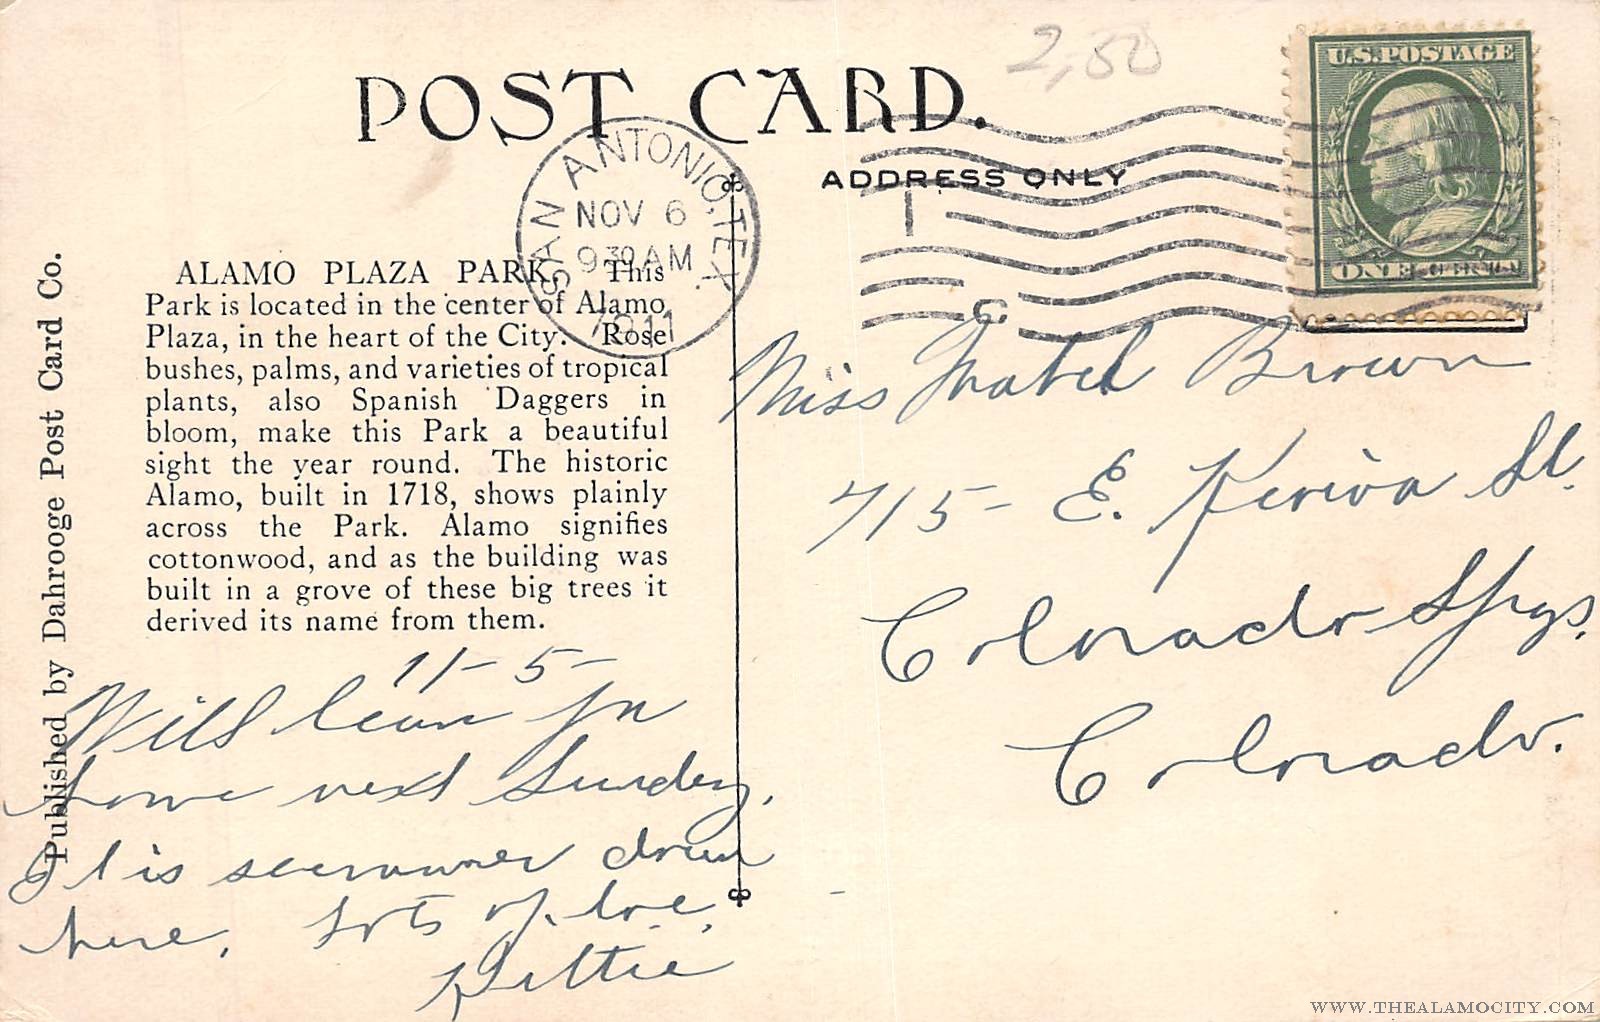 2,50
POST CARD.
ADDRESS ONLY
U.S. POSTAGE
ONE CENT
SAN ANTONIO, TEX.
NOV 6
9 30 AM
1911
Published by Dahrooge Post Card Co.
ALAMO PLAZA PARK. This
Park is located in the center of Alamo
Plaza, in the heart of the City. Rose
bushes, palms, and varieties of tropical
plants, also Spanish Daggers in
bloom, make this Park a beautiful
sight the year round. The historic
Alamo, built in 1718, shows plainly
across the Park. Alamo signifies
cottonwood, and as the building was
built in a grove of these big trees it
derived its name from them.
11-5-
Will leave for
home next Sunday.
It is summer down
here. Lots of love,
Kittie
Miss Mabel Brown
715- E. Kiowa St.
Colorado Spgs.
Colorado.
WWW.THEALAMOCITY.COM